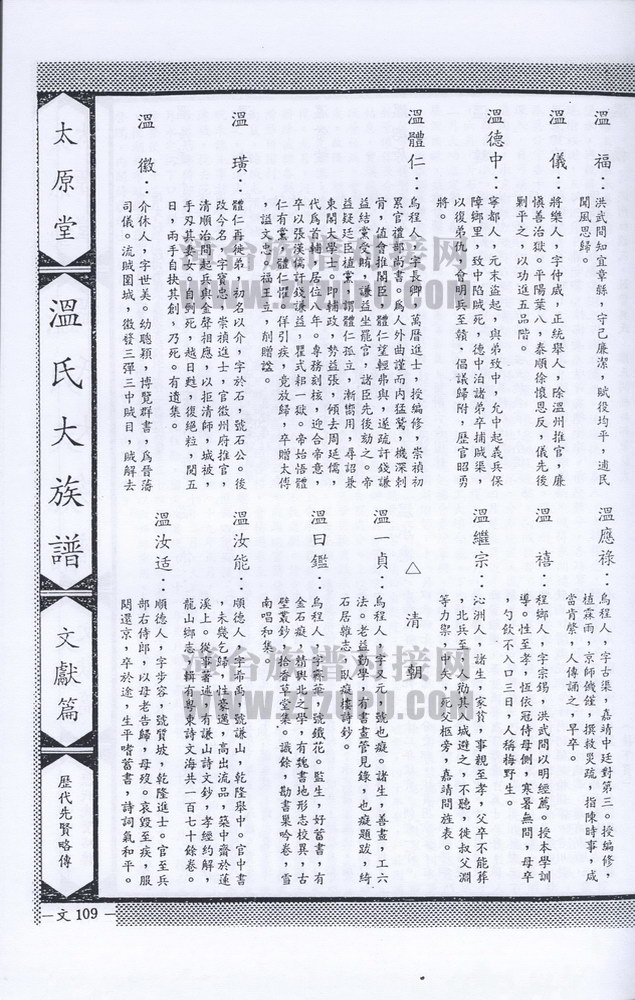 溫　福：洪武間知宜章縣，守己廉潔，賦役均平，逋民
聞風思歸。
溫　儀：將樂人，字仲威，正統舉人，除溫州推官，廉
慎善治獄。平陽葉八，泰順徐懷恩反，儀先後
剿平之，以功進五品階。
溫德中：寧都人，元末盜起，與弟致中，允中起義兵保
障鄉里，致中陷賊死，德中泊諸弟卒捕賊渠，
以復弟仇，會明兵至贛，倡議歸附，歷官昭勇
將。
溫體仁：烏程人，字長卿，萬曆進士，授編修，崇禎初
累官禮部尚書。爲人外曲謹而內猛鷙，機深刺
骨，值會推閣臣，體仁望輕弗與，遂疏訐錢謙
益結黨受賄，謙益坐罷官，諸臣先後劾之。帝
益疑廷臣植黨，謂體仁孤立，漸嚮用，尋詔兼
東閣大學士。即輔政，勢益張，傾去周延儒，
代爲首輔，居位八年。專務刻核，迎合帝意，
卒以張漢儒訐錢謙益，瞿式耜一獄。帝始悟體
仁有黨，體仁懼，佯引疾，竟放歸，卒贈太傅
，謚文忠。福王立，削贈謚。
溫　璜：體仁再從弟，初名以介，字於石，號石公。後
改今名，字寶忠，崇禎進士，官徽州府推官，
清順治間起兵與金聲相應，以拒清師，城被，
手刃其妻女。自剄死，越日甦，復絕粒，閱五
日，兩手自抉其創，乃死。有遺集。
溫　徽：介休人，字世美。幼聰穎，博覽群書，爲晉藩
司儀。流賊圍城，徽發三彈三中賊目，賊解去
溫應祿：烏程人，字古渠，嘉靖中廷對第三。授編修，
值霖雨，京師饑饉，撰救災疏，指陳時事，咸
當肯綮，人傳誦之，早卒。
溫　禧：程鄉人，字宗錫，洪武間以明經薦。授本學訓
導。性至孝，恆依冠侍母側，寒暑無間，母卒
，勺飲不入口三日，人稱梅野生。
溫繼宗：沁洲人，諸生，家貧，事親至孝，父卒不能葬
，北兵至，人勸其入城避之，不聽，徙叔父淵
等力禦，中矢，死父柩旁，嘉靖間旌表。
△　清　朝
溫一貞：烏程人，字又元，號也癡。諸生，善畫，工六
法。老益勤學，有書畫管見錄，也癡題跋，綺
石居雜志，臥癡樓詩鈔。
溫曰鑑：烏程人，字霖華，號鐵花。監生，好蓄書，有
金石癡，精輿北之學，有魏書地形志校異，古
壁叢鈔，拾香草堂集。識餘，勘書巢吟卷，雪
南唱和集。
溫汝能：順德人，字希禹，號謙山，乾隆舉中。官中書
，未幾乞歸，性豪邁，高出流品，築中齋於蓮
溪上。從事著述，有謙山詩文鈔，孝經約解，
龍山鄉志，輯有粵東詩文海共一百七十餘卷。
溫汝适：順德人，字步容，號賢坡，乾隆進士。官至兵
部右侍郎，以母老告歸，母歿。哀毀至疾，服
闋還京，卒於途，生平嗜蓄書，詩詞氣和平。
太原堂
溫氏大族譜
文獻篇
歷代先賢略傳
文 109